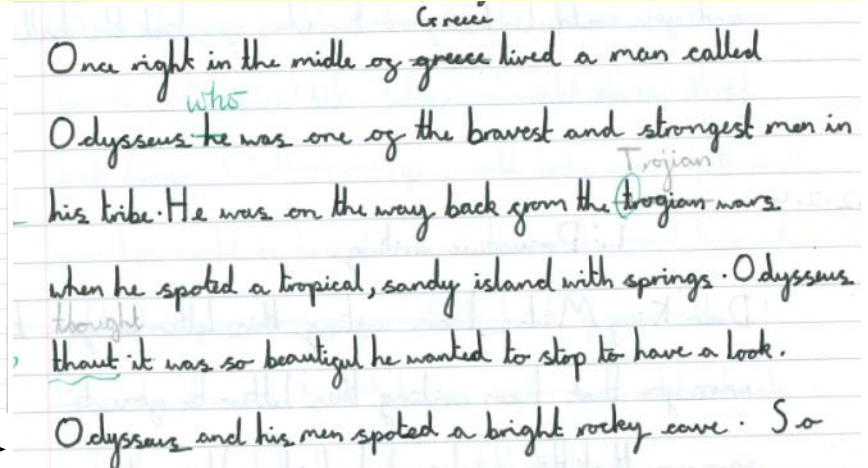 Greece
Once right in the midle of greece lived a man called
who
Odysseus he was one of the bravest and strongest men in
Trojian
his tribe. He was on the way back from the trogian wars
when he spoted a tropical, sandy island with springs. Odysseus
thought
thaut it was so beautiful he wanted to stop to have a look.
Odysseus and his men spoted a bright rocky cave. So